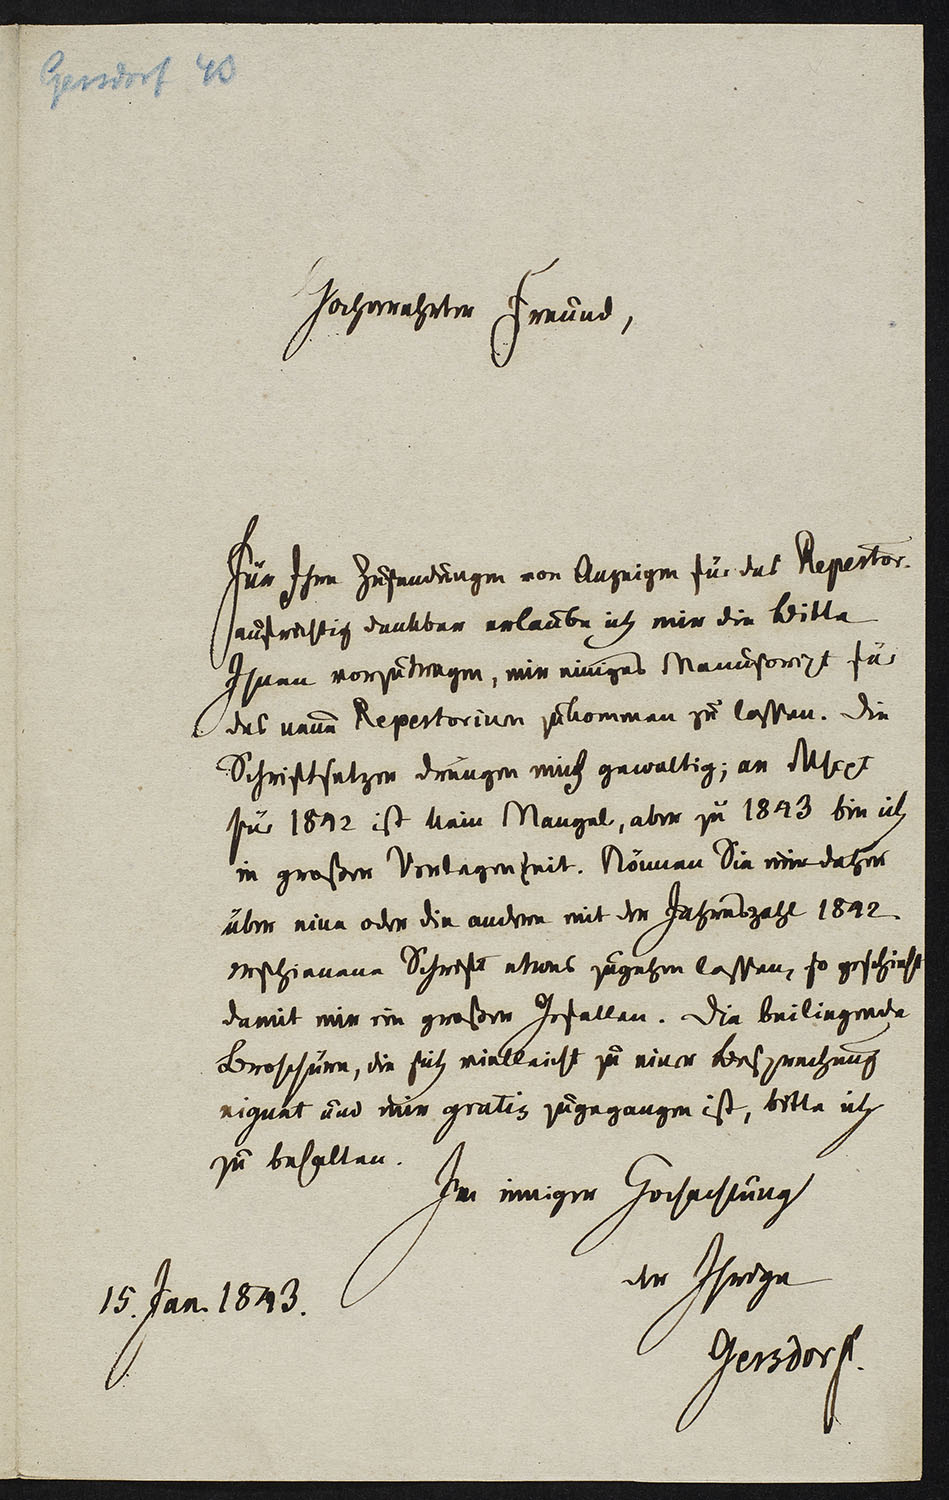 Gersdorf 43
Hochverehrter Freund,
Für Ihre Zusendungen von Anzeigen für das Repertor.
aufrichtig dankbar erlaube ich mir die Bitte
Ihnen vorzutragen, mir einiges Manuscript für
das neue Repertorium zukommen zu lassen. Die
Schriftsetzer drängen mich gewaltig; an Mscpt
für 1842 ist kein Mangel, aber zu 1843 bin ich
in großer Verlegenheit. Können Sie mir daher
über eine oder die andere mit der Jahreszahl 1842
erschienene Schrift etwas zugehen lassen, so geschieht
damit mir ein großer Gefallen. Die beiliegende
Broschüre, die sich vielleicht zu einer Besprechung
eignet und mir gratis zugegangen ist, bitte ich
zu behalten.
In inniger Hochachtung
der Ihrige
15. Jan. 1843.
Gersdorf.